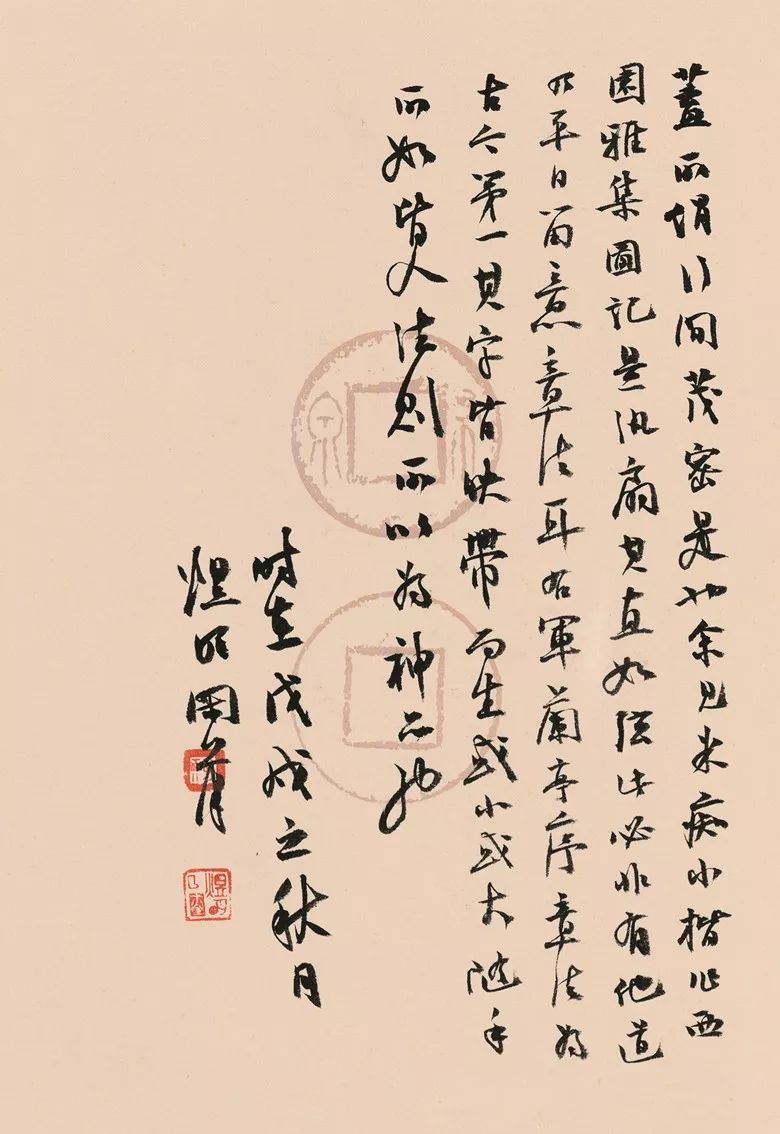 蓋所謂行間茂密是也余見米痴小楷作西
園雅集圖記是紈扇其直如弦此必非有他道
乃平日留意章法耳右軍蘭亭序章法為
古今第一其字皆映帶而生或小或大隨手
所如皆入法則所以為神品也
時在戊戌之秋月
煜明